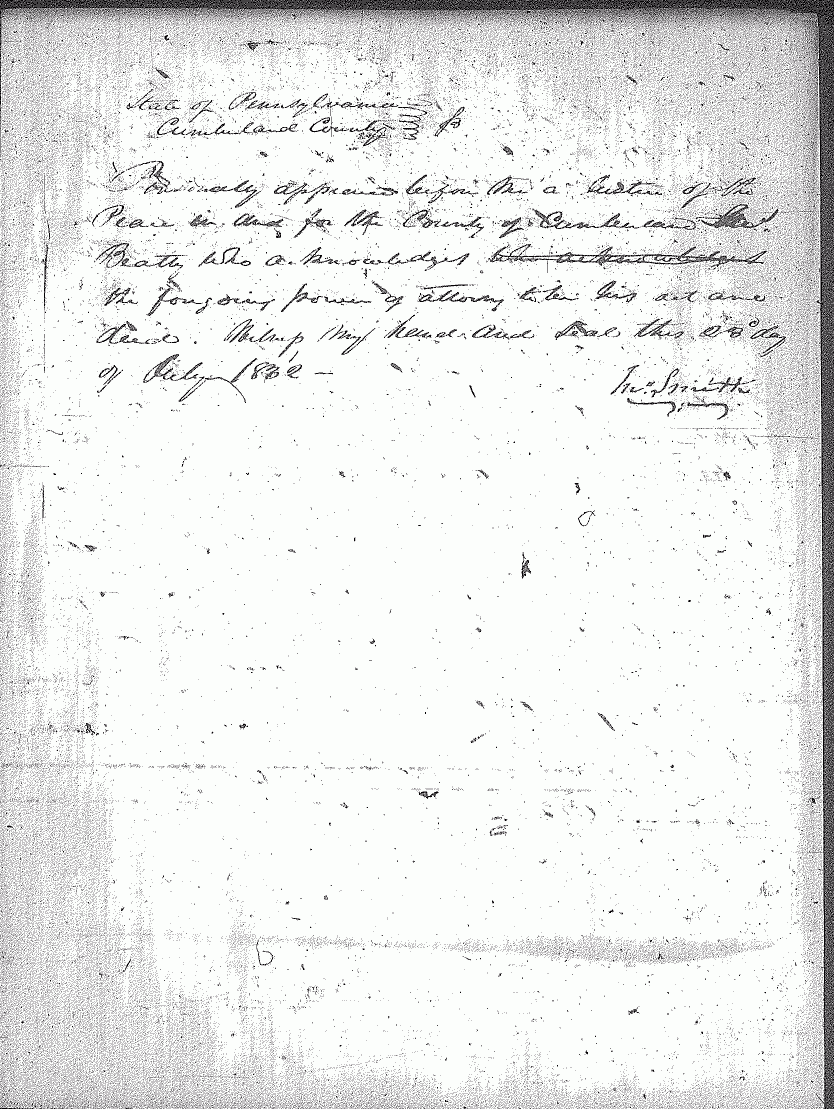 State of Pennsylvania
Cumberland County ss
Personally appeared before me a Justice of the
Peace in and for the County of Cumberland
Beatty who acknowledges who acknowledges
the foregoing power of attorney to be his act and
deed. Witness my hand and seal this day
of July 1832 –
Jno. Smith